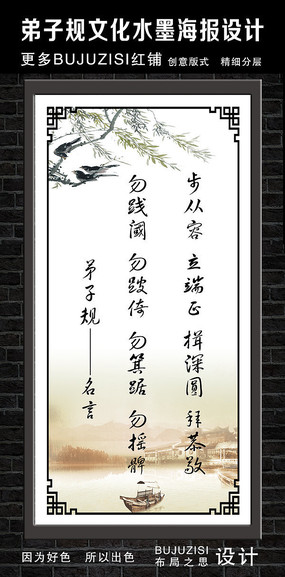 弟子规文化水墨海报设计
更多BUJUZISI红铺 创意版式 精细分层
步从容 立端正 揖深圆 拜恭敬
勿践阈 勿跛倚 勿箕踞 勿摇髀
弟子规——名言
因为好色 所以出色
BUJUZISI
布局之思
设计